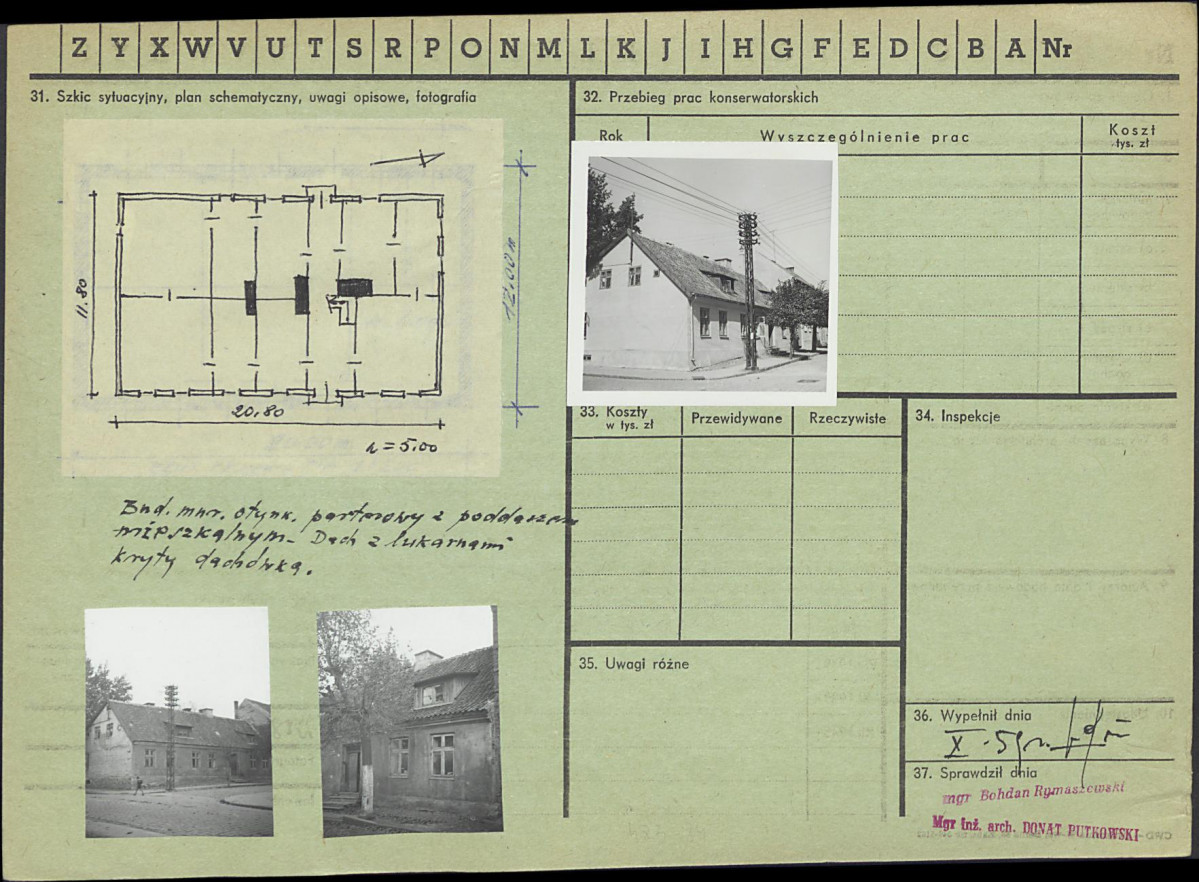 Z Y X W V U T S R P O N M L K J I H G F E D C B A Nr
31. Szkic sytuacyjny, plan schematyczny, uwagi opisowe, fotografia
11.80
20.80
h = 5.00
12.00 m
Bud. mur. otynk. parterowy z poddaszem
mieszkalnym. Dach z lukarnami
kryty dachówką.
32. Przebieg prac konserwatorskich
Rok
Wyszczególnienie prac
Koszt
tys. zł
33. Koszty
w tys. zł
Przewidywane
Rzeczywiste
34. Inspekcje
35. Uwagi różne
36. Wypełnił dnia
X. 59 r.
37. Sprawdził dnia
mgr Bohdan Rymaszewski
Mgr inż. arch. DONAT PUTKOWSKI